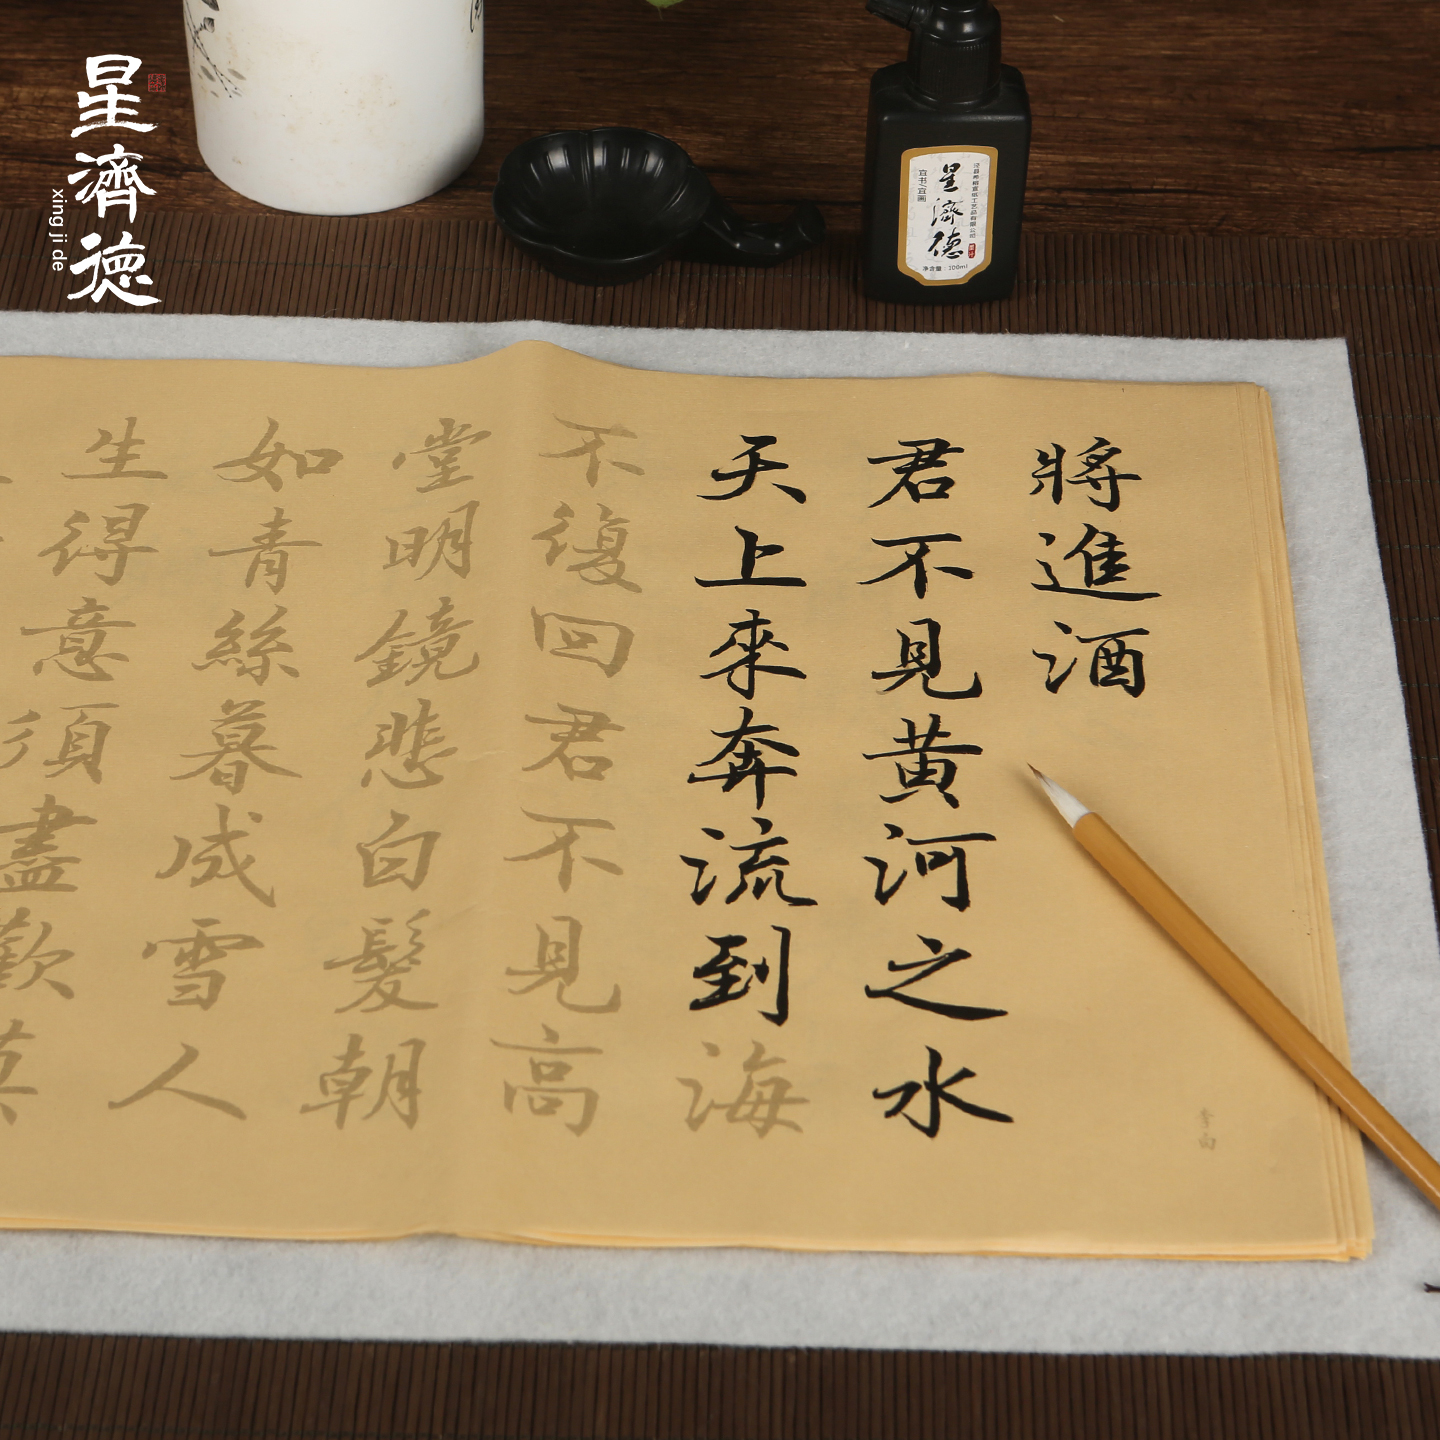 星濟德
xing ji de
星濟德
宜书/宜画
宣纸工艺品有限公司
净含量：100ml
將進酒
李白
君不見黄河之水
天上來奔流到海
不復回君不見高
堂明鏡悲白髮朝
如青絲暮成雪人
生得意須盡歡莫